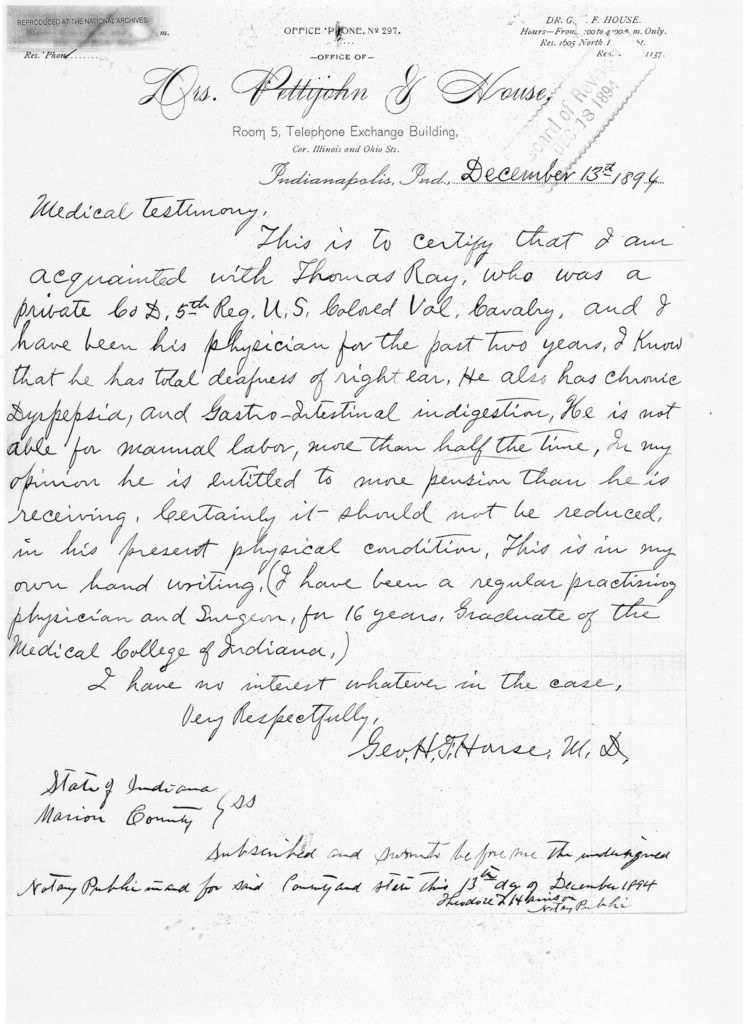 REPRODUCED AT THE NATIONAL ARCHIVES
m.
Res. 'Phone
OFFICE PHONE, No 297.
—OFFICE OF—
DR. G. F. HOUSE.
Hours—From 00 to 4 00 p.m. Only.
Res. 1605 North St.
Res. 1137.
Drs. Pettijohn & House,
Board of Rev
DEC 18 1894
Room 5, Telephone Exchange Building,
Cor. Illinois and Ohio Sts.
Indianapolis, Ind., December 13th 1894
Medical testimony.
This is to certify that I am
acquainted with Thomas Ray, who was a
private Co D, 5th Reg. U.S. Colored Vol. Cavalry, and I
have been his physician for the past two years, I Know
that he has total deafness of right ear, He also has chronic
Dyspepsia, and Gastro-Intestinal indigestion, He is not
able for manual labor, more than half the time, In my
opinion he is entitled to more pension than he is
receiving. Certainly it should not be reduced,
in his present physical condition, This is in my
own hand writing, (I have been a regular practising
physician and Surgeon, for 16 years. Graduate of the
Medical College of Indiana,)
I have no interest whatever in the case,
Very Respectfully,
Geo. H. F. House, M. D.
State of Indiana
Marion County } SS
Subscribed and sworn to before me the undersigned
Notary Public in and for said County and state this 13th day of December 1894
Theodore
Notary Public